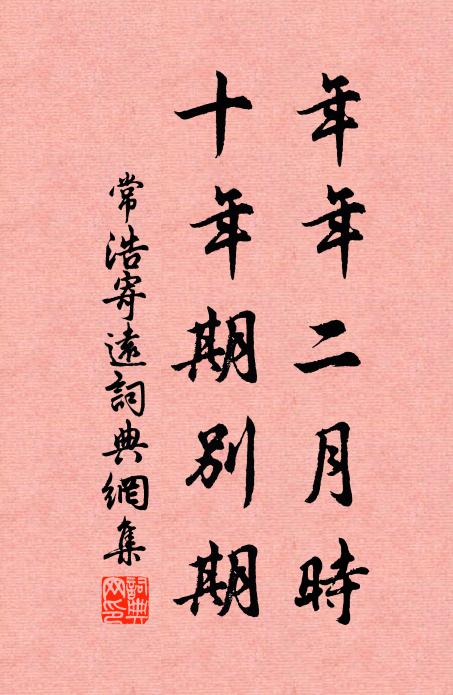 年年二月時
十年期別期
常浩寄遠詞典網集
詞典
網印